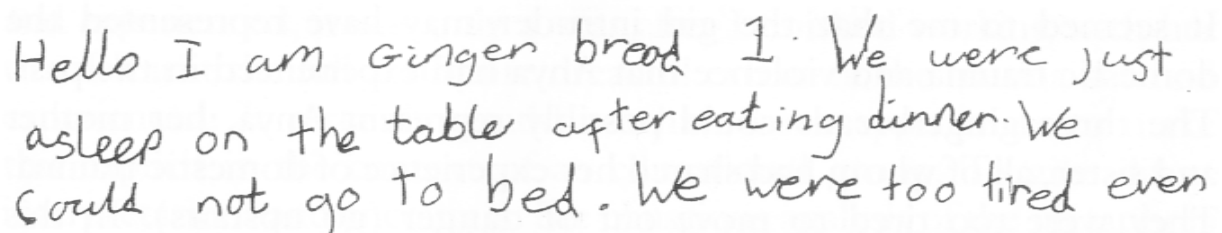 Hello I am Ginger bread 1. We were just
asleep on the table after eating dinner. We
could not go to bed. We were too tired even